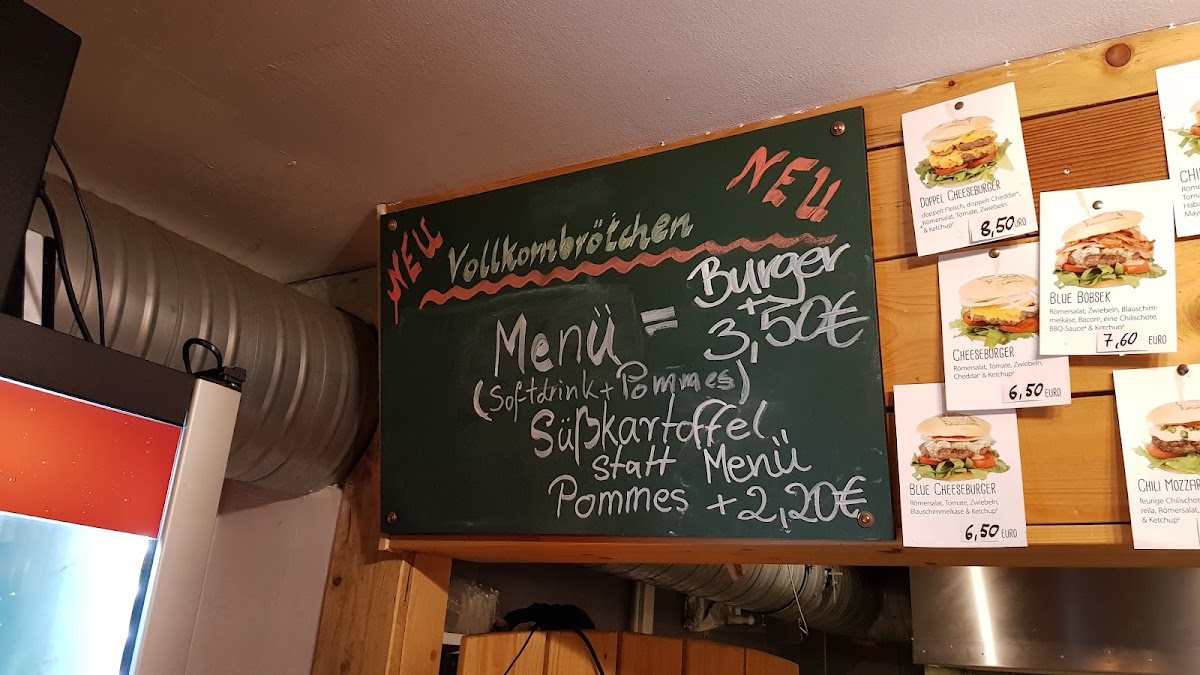 NEU
Vollkornbrötchen
NEU
Menü = Burger
+
3,50€
(Softdrink + Pommes)
Süßkartoffel
statt Menü
Pommes +2,20€
DOPPEL CHEESEBURGER
doppelt Fleisch, doppelt Cheddar¹,
Römersalat, Tomate, Zwiebeln
& Ketchup²
8,50 URO
BLUE BOBSEK
Römersalat, Zwiebeln, Blauschim-
melkäse, Bacon³, eine Chilischote,
BBQ-Sauce⁴ & Ketchup²
7,60 EURO
CHEESEBURGER
Römersalat, Tomate, Zwiebeln,
Cheddar¹ & Ketchup²
6,50 EURO
BLUE CHEESEBURGER
Römersalat, Tomate, Zwiebeln,
Blauschimmelkäse & Ketchup²
6,50 EURO
CHILI MOZZAR
feurige Chilischote
rella, Römersalat,
& Ketchup²
CHIL
Röme
Tomat
Haba
May